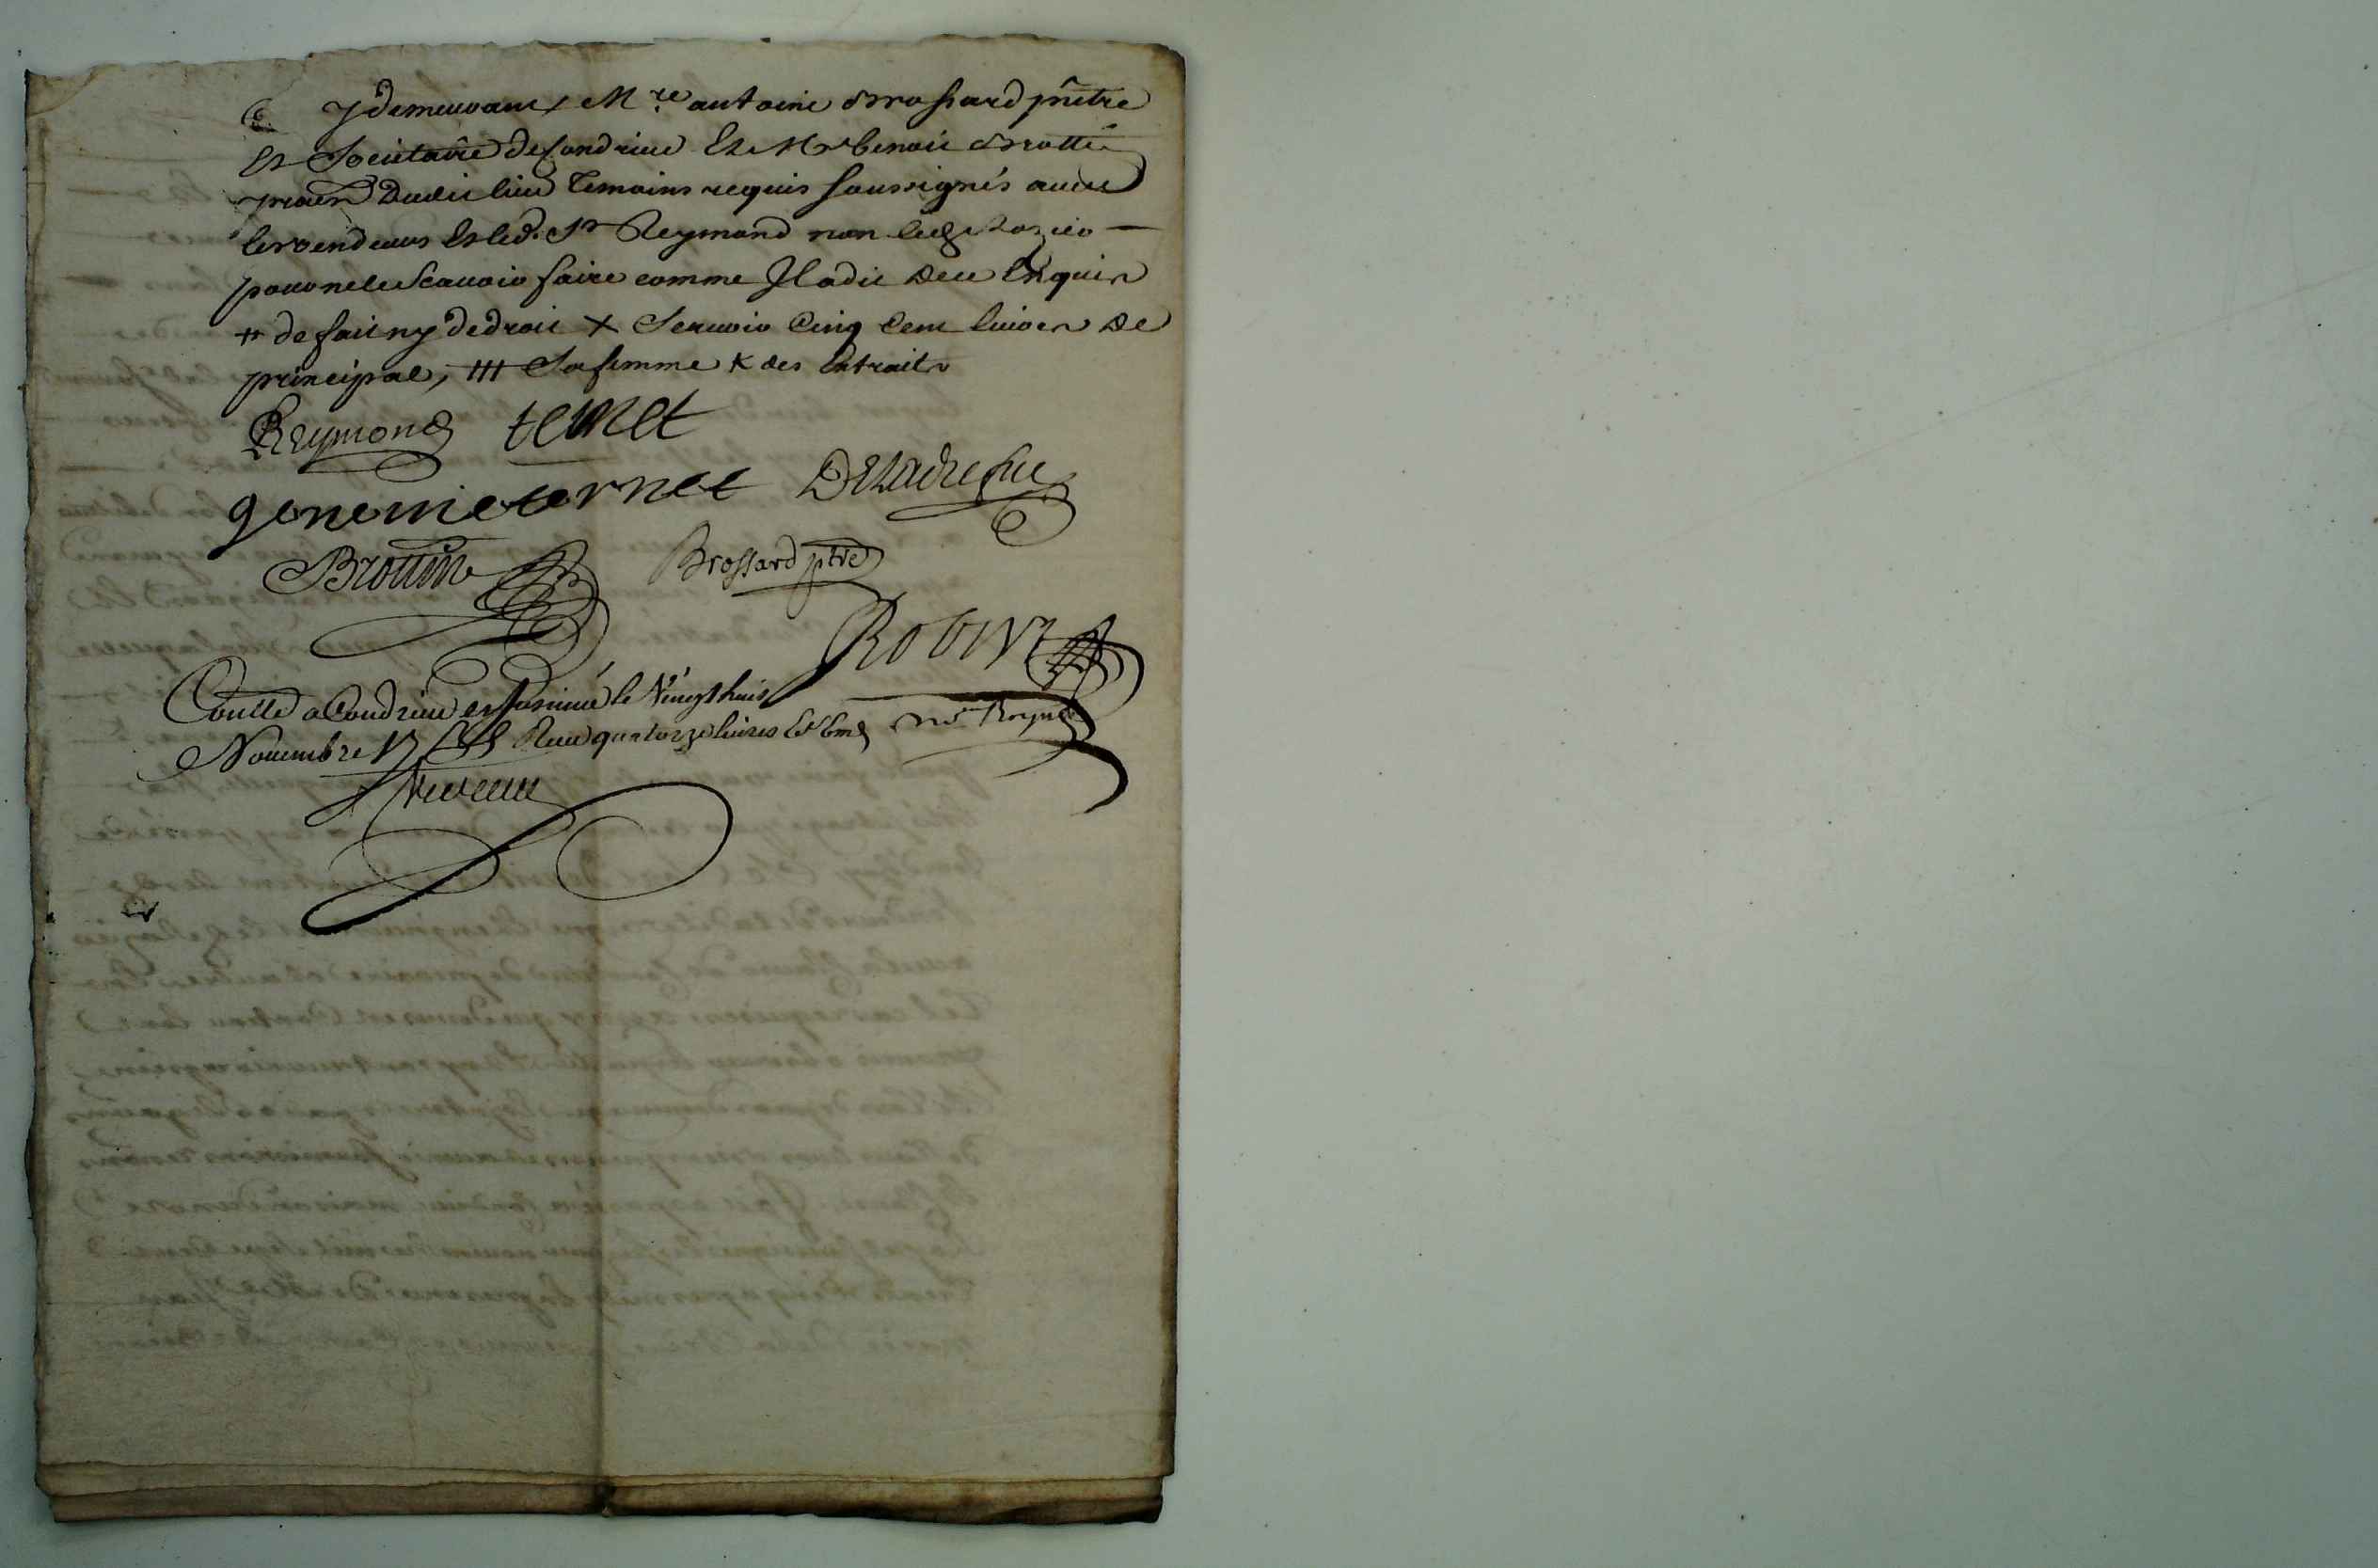 y demeurant Mre antoine Brossard prêtre
Et Societaire de Condrieu Et Mr benoit Brottin
dudit lieu temoins requis soussignés avec
les vendeurs Et led. Sr Reymond non led. Rozier
pour ne le Scauoir faire comme Il a dit de ce Enquis
# de fait ny de droit X Seruoir Cinq Cent liures de
principal, ttt Sa femme K des Extraits
Reymond ternet
genevieve ternet Deladresue
Brottin Brossard ptre
Robin
Controllé a Condrieu et Insinué le Vingt huit
Novembre 17 Receu quatorze liures nore Royal